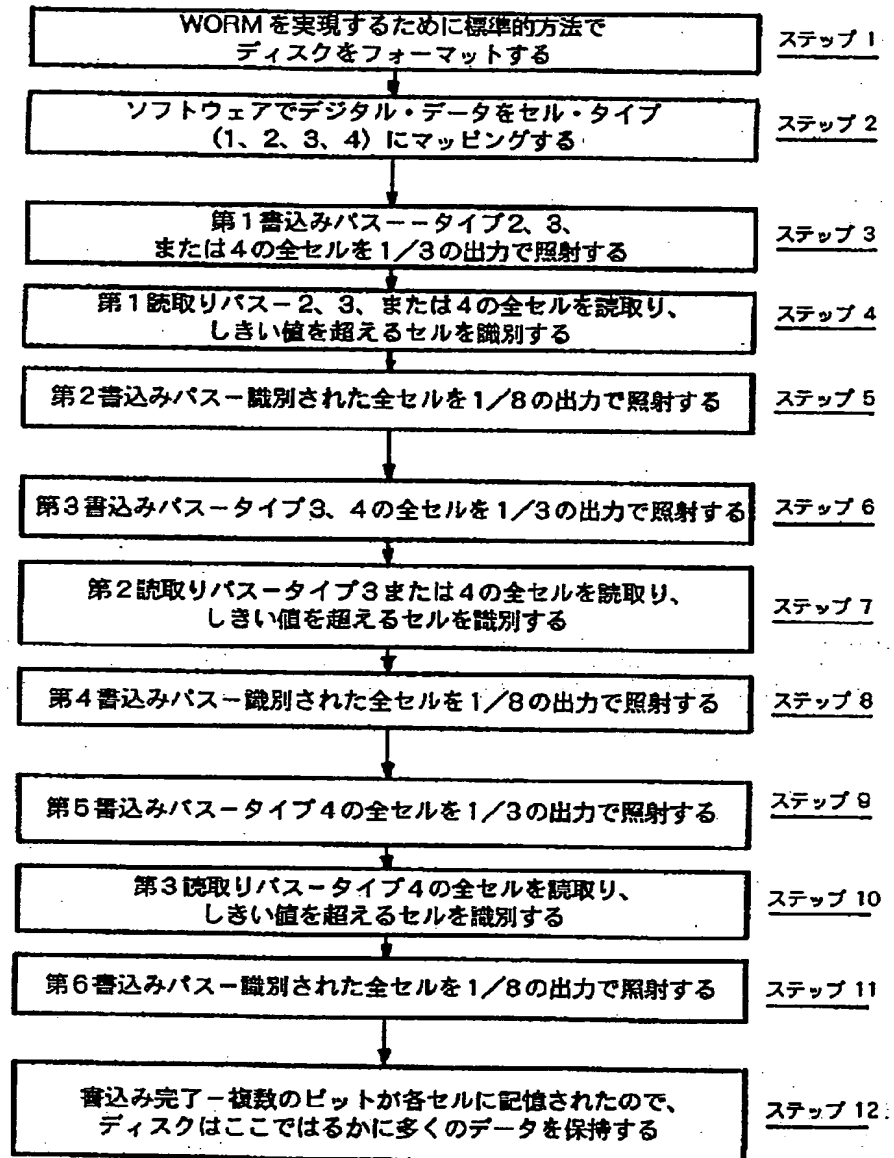 WORMを実現するために標準的方法で
ディスクをフォーマットする
ステップ 1
ソフトウェアでデジタル・データをセル・タイプ
(1、2、3、4)にマッピングする
ステップ 2
第1書込みパスー-タイプ2、3、
または4の全セルを1/3の出力で照射する
ステップ 3
第1読取りパス-2、3、または4の全セルを読取り、
しきい値を超えるセルを識別する
ステップ 4
第2書込みパス-識別された全セルを1/8の出力で照射する
ステップ 5
第3書込みパス-タイプ3、4の全セルを1/3の出力で照射する
ステップ 6
第2読取りパス-タイプ3または4の全セルを読取り、
しきい値を超えるセルを識別する
ステップ 7
第4書込みパス-識別された全セルを1/8の出力で照射する
ステップ 8
第5書込みパス-タイプ4の全セルを1/3の出力で照射する
ステップ 9
第3読取りパス-タイプ4の全セルを読取り、
しきい値を超えるセルを識別する
ステップ 10
第6書込みパス-識別された全セルを1/8の出力で照射する
ステップ 11
書込み完了-複数のビットが各セルに記憶されたので、
ディスクはここではるかに多くのデータを保持する
ステップ 12